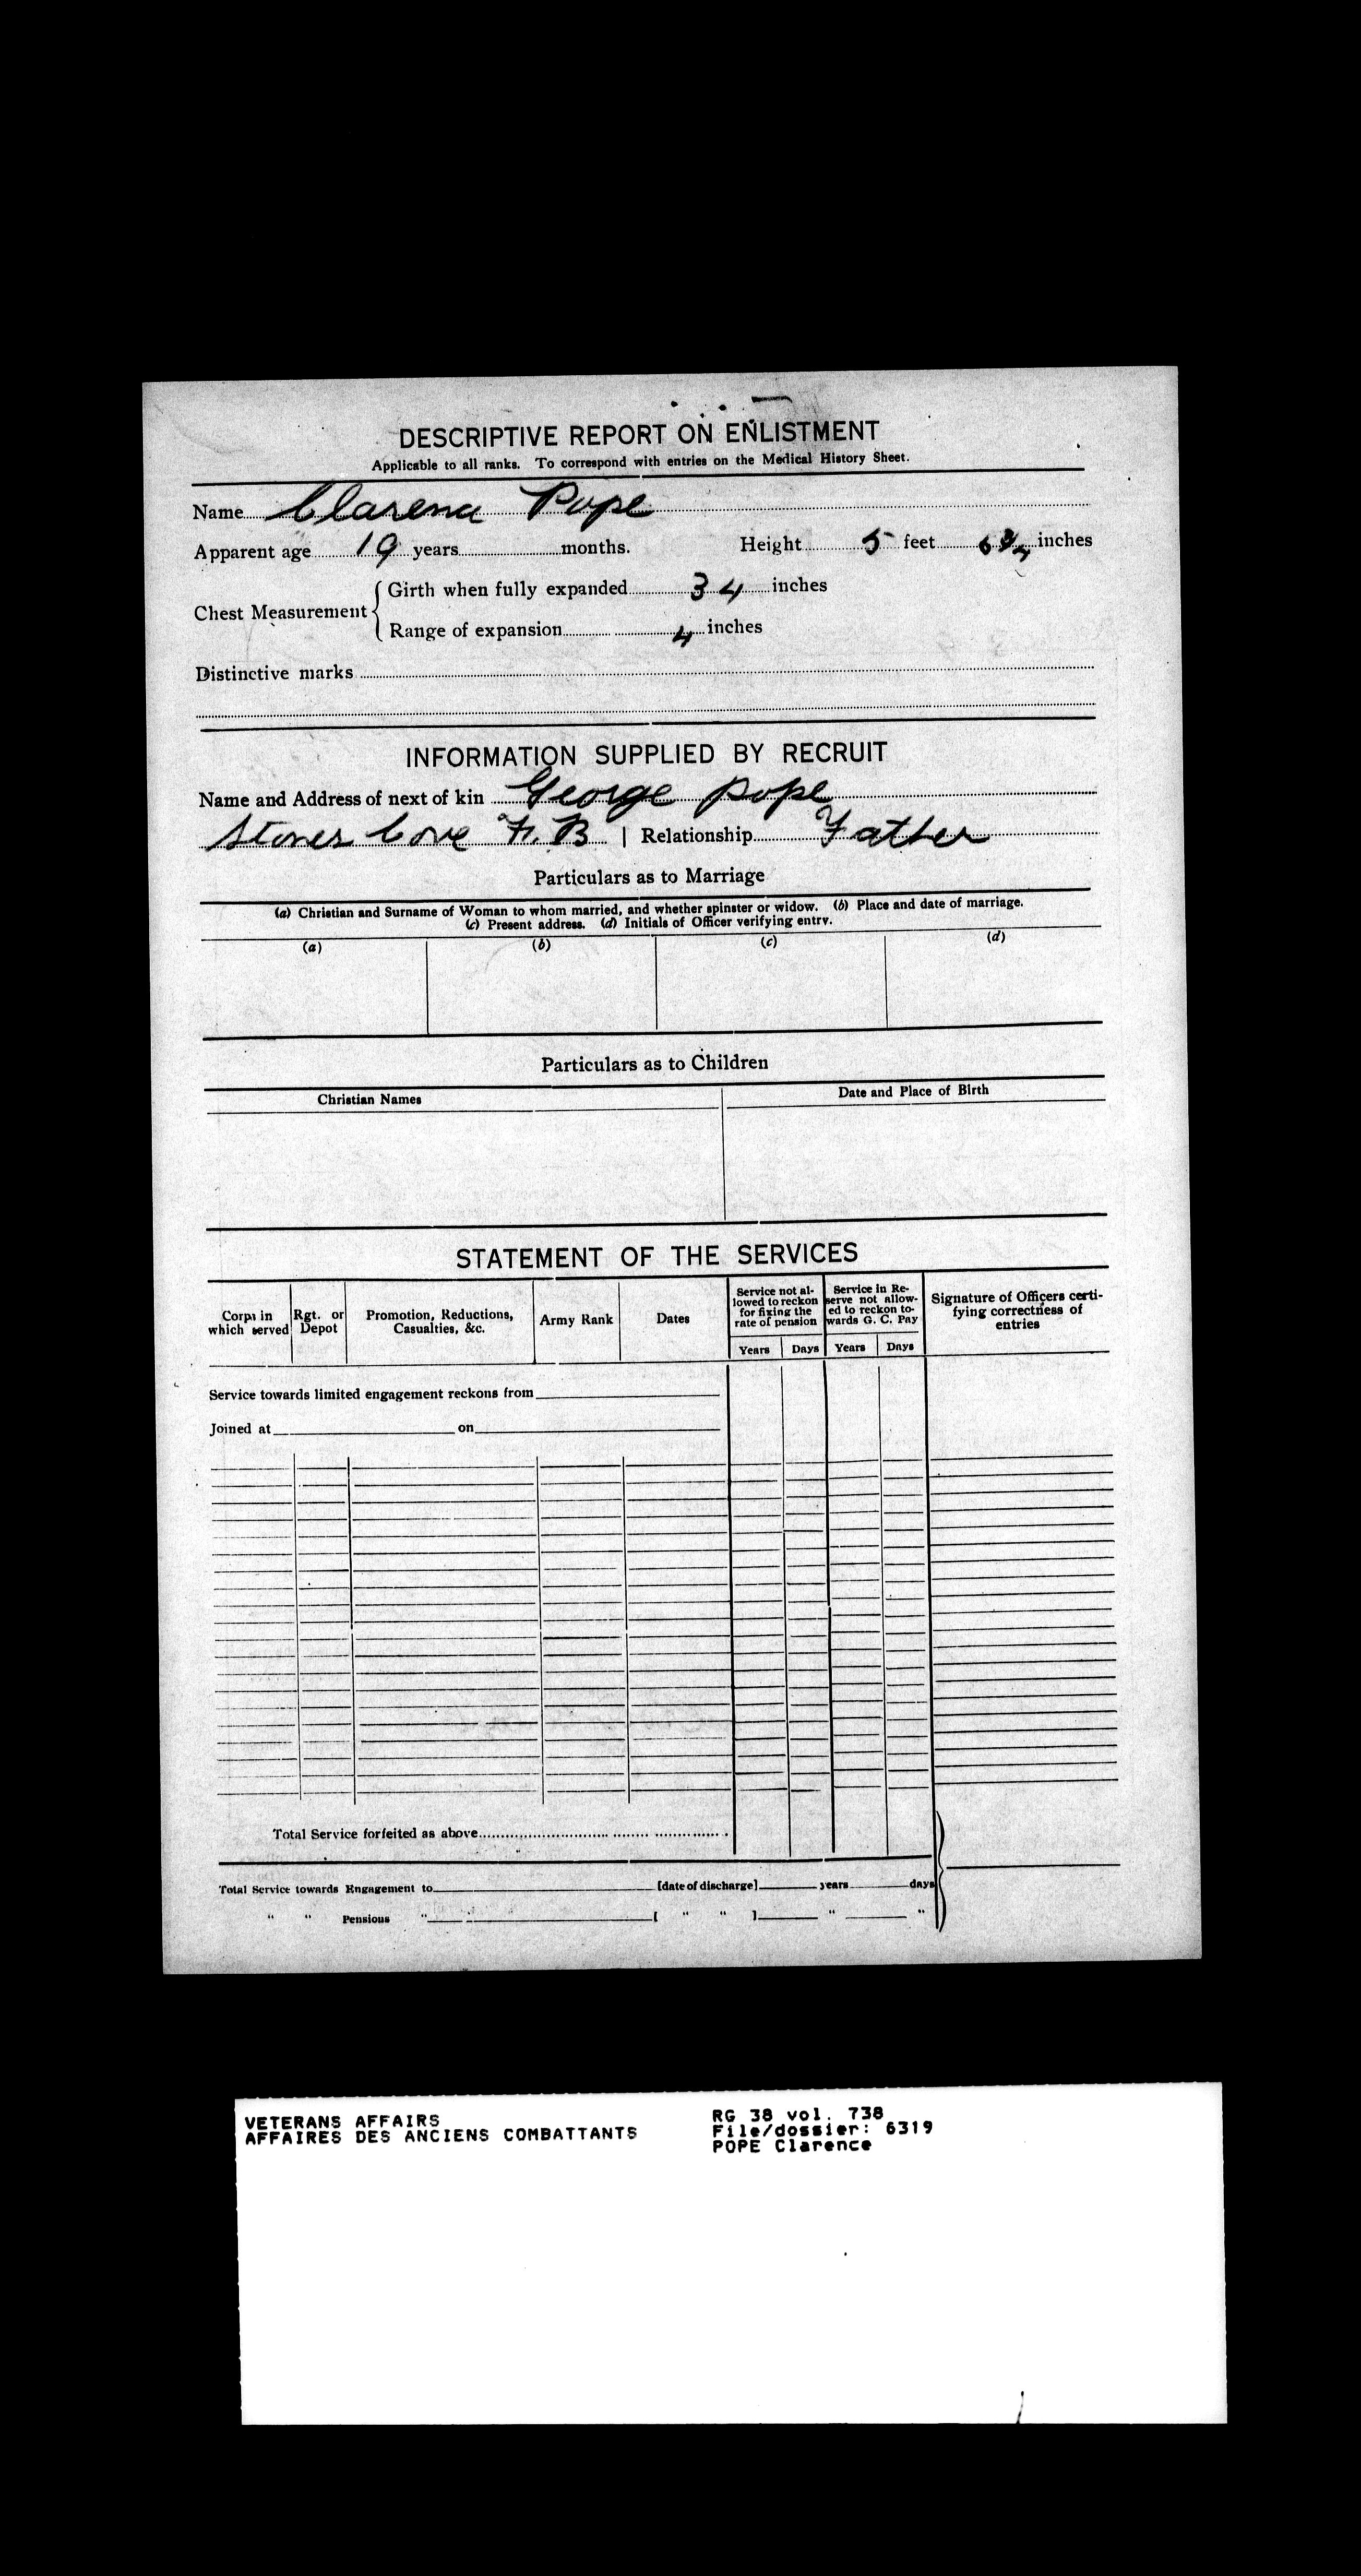 DESCRIPTIVE REPORT ON ENLISTMENT
Applicable to all ranks. To correspond with entries on the Medical History Sheet.
Name Clarence Pope
Apparent age 19 years months. Height 5 feet inches
Chest Measurement
Girth when fully expanded 34 inches
Range of expansion 4 inches
Distinctive marks
INFORMATION SUPPLIED BY RECRUIT
Name and Address of next of kin George Pope
Stones Cove F. B | Relationship Father
Particulars as to Marriage
(a) Christian and Surname of Woman to whom married, and whether spinster or widow. (b) Place and date of marriage.
(c) Present address. (d) Initials of Officer verifying entry.
(a) (b) (c) (d)
Particulars as to Children
Christian Names Date and Place of Birth
STATEMENT OF THE SERVICES
Corps in which served
Rgt. or Depot
Promotion, Reductions, Casualties, &c.
Army Rank
Dates
Service not allowed to reckon for fixing the rate of pension
Service in Reserve not allowed to reckon towards G. C. Pay
Signature of Officers certifying correctness of entries
Years Days Years Days
Service towards limited engagement reckons from
Joined at on
Total Service forfeited as above
Total Service towards Engagement to [date of discharge] years days
" " Pensions " [ " " ] " "
VETERANS AFFAIRS
AFFAIRES DES ANCIENS COMBATTANTS
RG 38 vol. 738
File/dossier: 6319
POPE Clarence